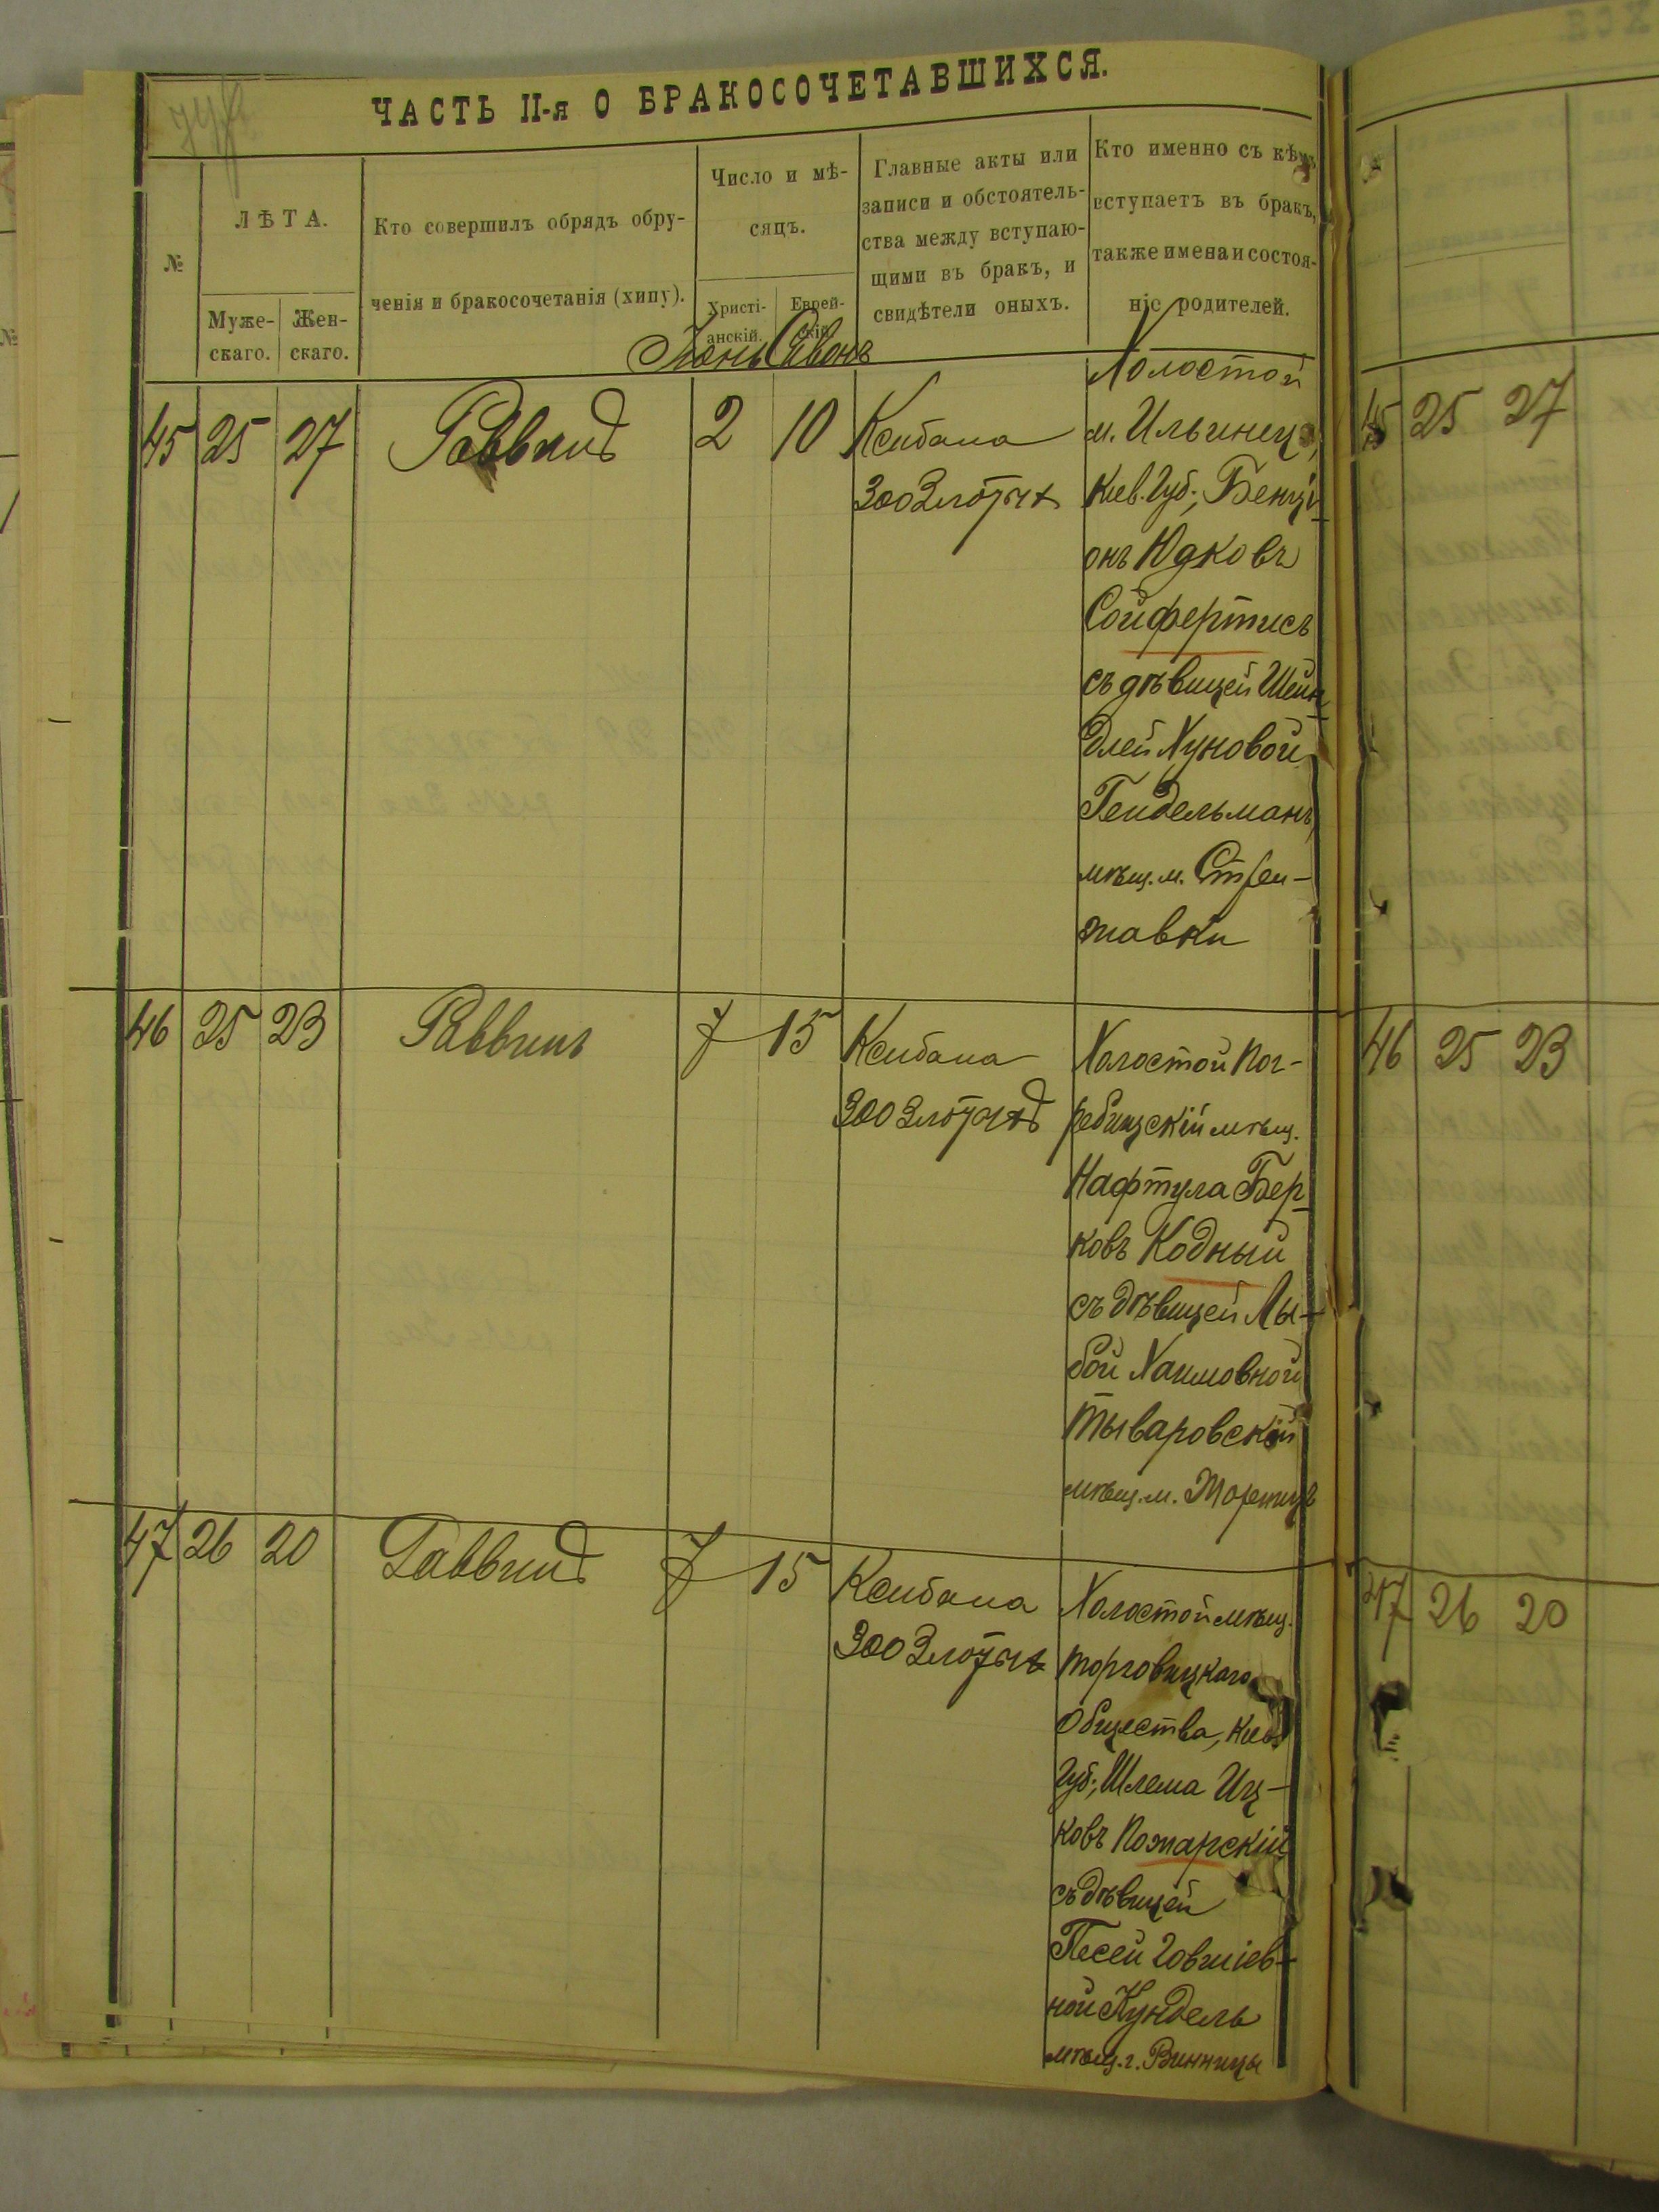 ЧАСТЬ II-я О БРАКОСОЧЕТАВШИХСЯ.
№
ЛѢТА.
Муже-
скаго.
Жен-
скаго.
Кто совершилъ обрядъ обру-
ченія и бракосочетанія (хипу).
Число и мѣ-
сяцъ.
Христі-
анскій.
Еврей-
скій.
Главные акты или
записи и обстоятель-
ства между вступаю-
щими въ бракъ, и
свидѣтели оныхъ.
Кто именно съ кѣмъ
вступаетъ въ бракъ,
также имена и состоя-
ніе родителей.
Іюнь Сивонъ
45 25 27 Раввинъ 2 10 Ксибаиа
300 Злотыхъ
Холостой
м. Ильинецъ,
Кіев. Губ., Бенці-
онъ Юдковъ
Сойфертисъ
съ дѣвицей Шейн-
длей Хуновой
Гендельманъ,
мѣщ. м. Стри-
жавки
46 25 23 Раввинъ 7 15 Ксибаиа
300 Злотыхъ
Холостой Пог-
ребищскій мѣщ.
Нафтула Бер-
ковъ Кодный
съ дѣвицей Лы-
бой Хаимовной
Тываровскій
мѣщ. м.
47 26 20 Раввинъ 7 15 Ксибаиа
300 Злотыхъ
Холостой мѣщ.
Торговицкаго
Общества, Кіев.
Губ., Шлема Иц-
ковъ Пожарскій
съ дѣвицей
Песей Говшіев-
ной Кундель
мѣщ. г. Винницы
45 25 27
46 25 23
47 26 20